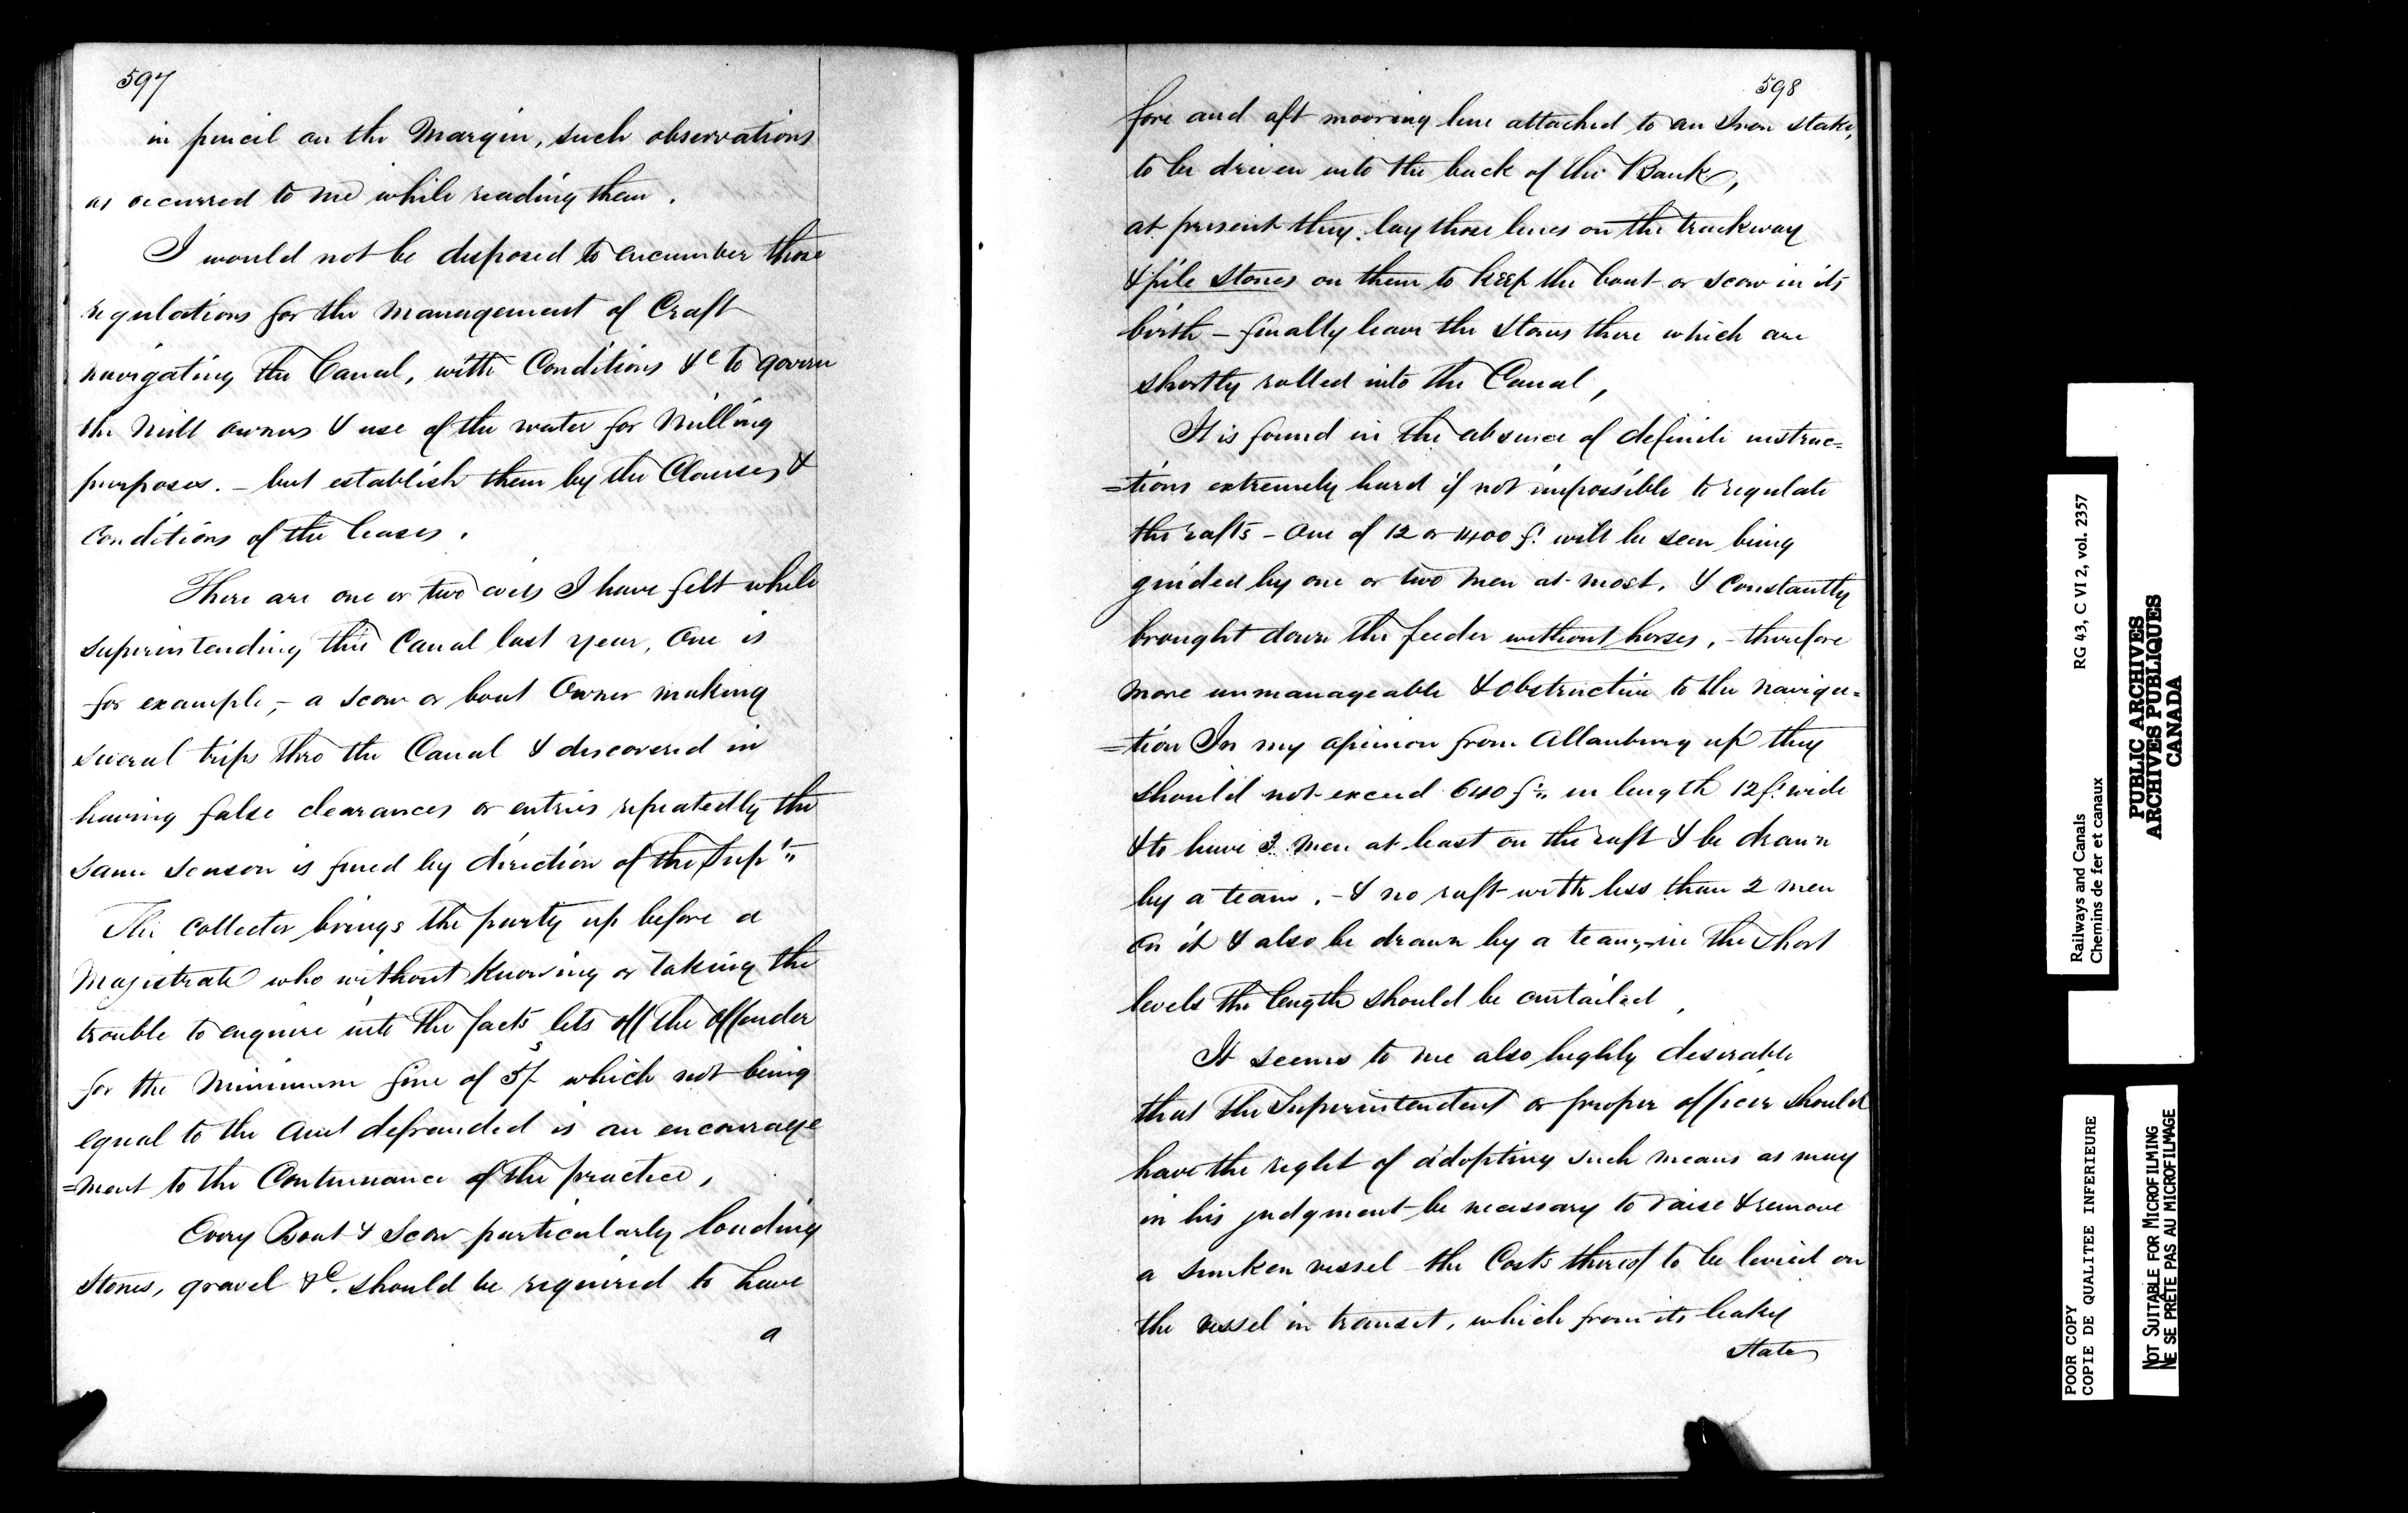 597
in pencil on the Margin, such observations
as occurred to me while reading them.
I would not be disposed to encumber those
regulations for the management of Craft
navigating the Canal, with Conditions &c to govern
the Mill owners & use of the water for Milling
purposes. - but establish them by the Clauses &
Conditions of the leases.
There are one or two evils I have felt while
superintending this Canal last year, One is
for example, - a scow or boat Owner making
several trips thro the Canal & discovered in
having false clearances or entries repeatedly the
same season is fined by direction of the Supt"
The Collector brings the party up before a
Magistrate who without knowing or taking the
trouble to enquire into the facts lets off the offender
for the Minimum fine of 5s/ which not being
equal to the Amt defrauded is an encourage
=ment to the Continuance of the practice,
Every Boat & Scow particularly loading
Stones, gravel &c. should be required to have
a
598
fore and aft mooring line attached to an Iron stake,
to be driven into the back of the Bank,
at present they lay those lines on the trackway
& pile stones on them to keep the boat or scow in its
birth - finally leave the stones there which are
shortly rolled into the Canal,
It is found in the absence of definite instruc=
=tions extremely hard if not impossible to regulate
the rafts - One of 12 or 1400 ft will be seen being
guided by one or two men at most. & Constantly
brought down the feeder without horses, - therefore
more unmanageable & obstructive to the naviga=
=tion In my opinion from Allanburg up they
should not exceed 640 ft" in length 12 ft wide
& to have 3 men at least on the raft & be drawn
by a team. - & no raft with less than 2 men
on it & also be drawn by a team, - in the short
levels the length should be curtailed,
It seems to me also highly desirable
that the Superintendent or proper officer should
have the right of adopting such means as may
in his judgment be necessary to raise & remove
a sunken vessel - the Costs thereof to be levied on
the vessel in transit, which from its leaky
state
Railways and Canals
Chemins de fer et canaux
RG 43, C VI 2, vol. 2357
PUBLIC ARCHIVES
ARCHIVES PUBLIQUES
CANADA
POOR COPY
COPIE DE QUALITEE INFERIEURE
NOT SUITABLE FOR MICROFILMING
NE SE PRÊTE PAS AU MICROFILMAGE